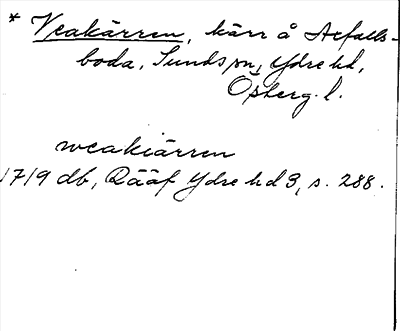 * Veakärren, kärr å Aefalls-
boda, Sunds sn, Ydre hd,
Österg. l.
weakiärren
1719 db, Rääf Ydre hd 3, s. 288.